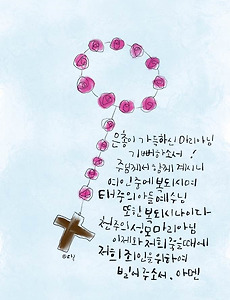 은총이 가득하신 마리아님
기뻐하소서!
주님께서 함께 계시니
여인중에 복되시며
태중의 아들 예수님
또한 복되시나이다
천주의 성모마리아님
이제와 저희 죽을때에
저희 죄인을위하여
빌어주소서. 아멘